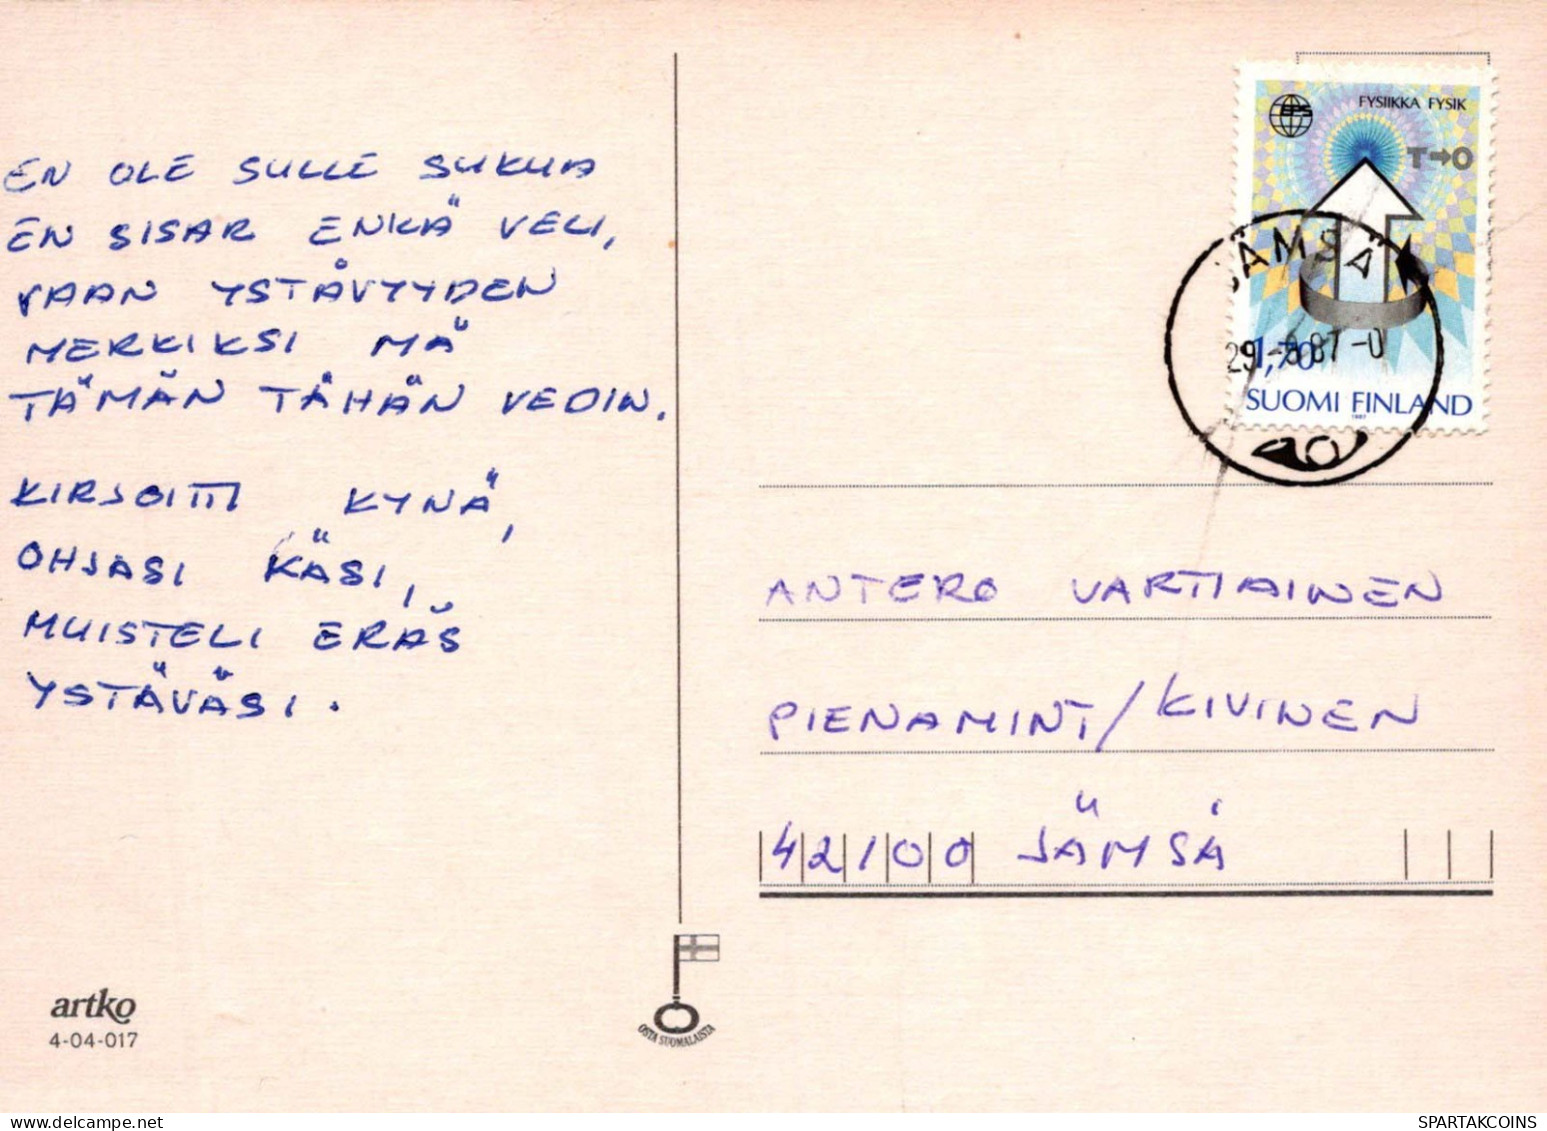 EN OLE SULLE SUKUA
EN SISAR ENKÄ VELI,
VAAN YSTÄVYYDEN
MERKIKSI MÄ
TÄMÄN TÄHÄN VEDIN.
KIRJOITTI KYNÄ,
OHJASI KÄSI,
MUISTELI ERÄS
YSTÄVÄSI.
artko
4-04-017
OSTA SUOMALAISTA
FYSIIKKA FYSIK
EPS
T→O
JÄMSÄ
29.-8.87-0
1,70
SUOMI FINLAND
1987
ANTERO VARTIAINEN
PIENAMINT/KIVINEN
42100 JÄMSÄ
delcampe.net
SPARTAKCOINS